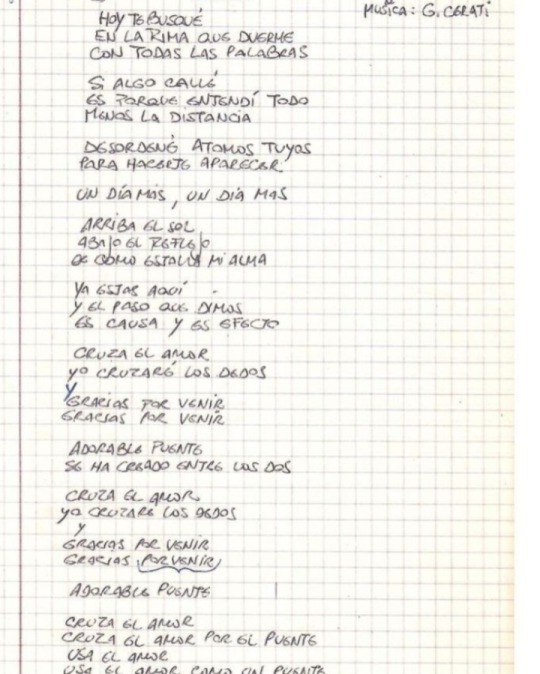 MUSICA: G. CERATI
HOY TE BUSQUÉ
EN LA RIMA QUE DUERME
CON TODAS LAS PALABRAS
SI ALGO CALLÉ
ES PORQUE ENTENDÍ TODO
MENOS LA DISTANCIA
DESORDENÉ ATOMOS TUYOS
PARA HACERTE APARECER
UN DÍA MAS, UN DÍA MAS
ARRIBA EL SOL
ABAJO EL REFLEJO
DE COMO ESTALLA MI ALMA
YA ESTAS AQUÍ
Y EL PASO QUE DIMOS
ES CAUSA Y ES EFECTO
CRUZA EL AMOR
YO CRUZARÉ LOS DEDOS
Y
GRACIAS POR VENIR
GRACIAS POR VENIR
ADORABLE PUENTE
SE HA CREADO ENTRE LOS DOS
CRUZA EL AMOR
YO CRUZARE LOS DEDOS
Y
GRACIAS POR VENIR
GRACIAS PORVENIR
ADORABLE PUENTE
CRUZA EL AMOR
CRUZA EL AMOR POR EL PUENTE
USA EL AMOR
USA EL AMOR COMO UN PUENTE